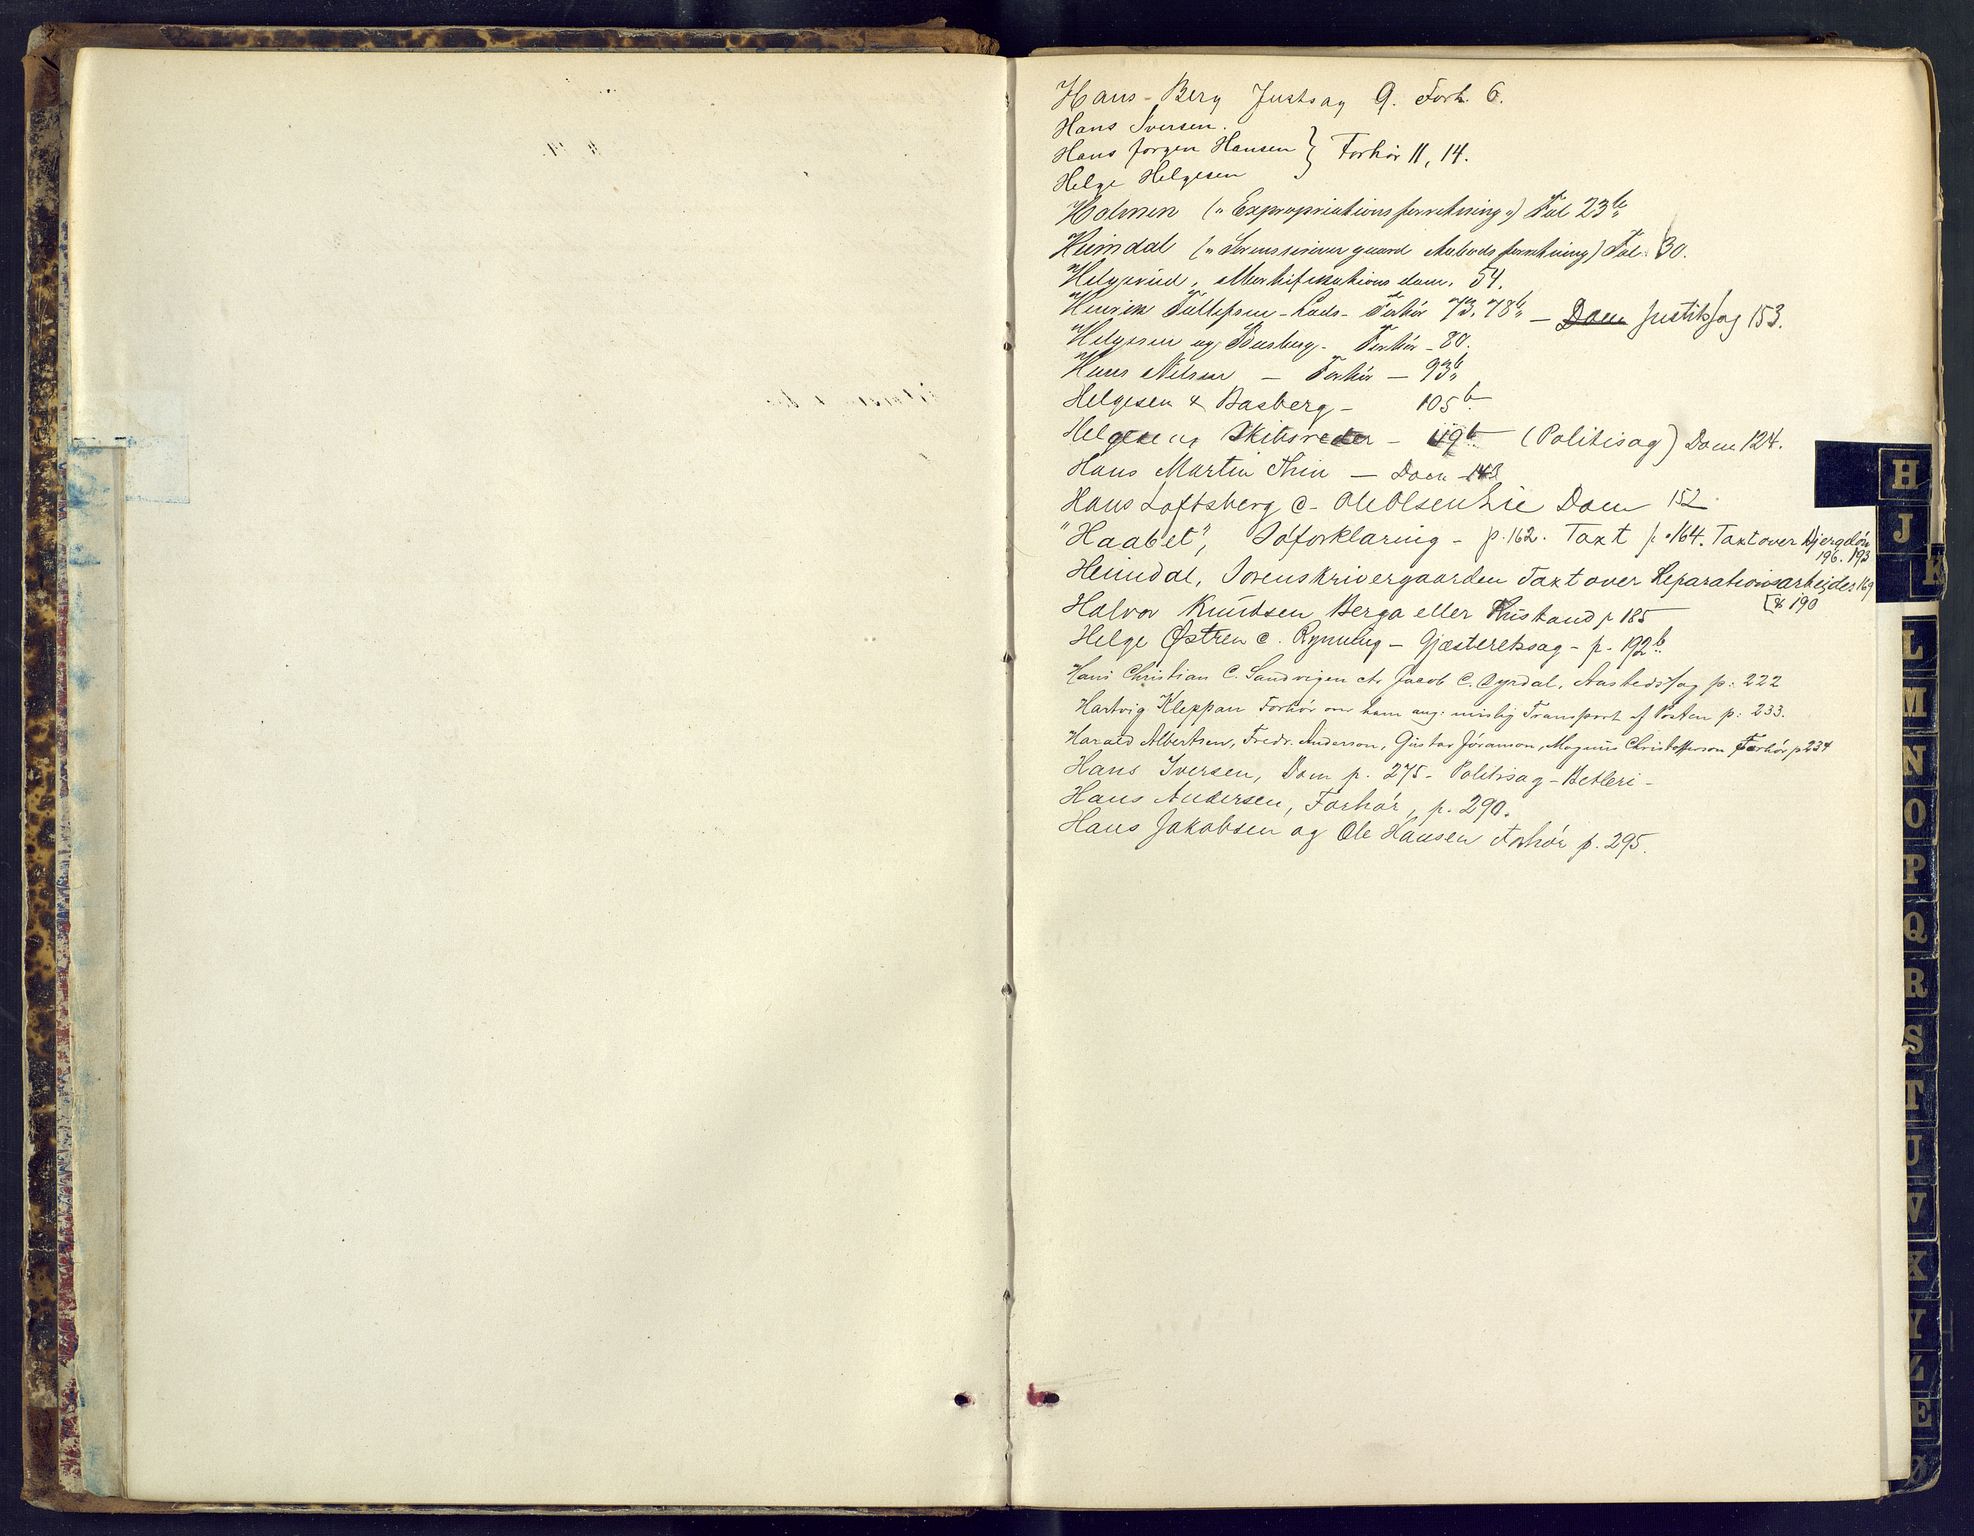 Hans Berg Justsag 9. Forh. 6.
Hans Iversen.
Hans Jørgen Hansen } Forhør 11, 14.
Helge Helgesen
Holmen („Expropriationsforretning„) Fol 23b
Heimdal („Sorenskrivergaard Aabodsforretning) Fol. 30.
Helgerud, Mortifikationsdom. 54.
Henrik Tollefsen Forhør 73, 78b – Dom Justitssag 153.
Helgesen og Basberg. Forhør – 80.
Hans Nilsen – Forhør – 93b
Helgesen & Basberg – 105b
Helgesen Skibsreder – 119b (Politisag) Dom 124.
Hans Martin Thin – Dom 143
Hans Loftsberg c. Ole Olsen Lie Dom 152
"Haabet", Søforklaring – p. 162. Taxt p. 164. Taxt over
196. 193
Heimdal, Sorenskrivergaarden Taxt over Reparationsarbejder 169
[& 190
Halvor Knudsen Berga eller p 185
Helge Østren c. Rynning – Gjæsteretssag – p. 192b.
Hans Christian C. Sandvigen ctr Jacob C. Dyrdal, Aastedssag p: 222
Hartvig Kleppan Forhør over ham ang: mislig Transport af Posten p: 233.
Harald Albertsen, Fredr. Anderson, Gustav Jóranson, Magnus Christofferson Forhør p 234
Hans Iversen, Dom p. 275 – Politisag – Betleri –
Hans Andersen, Forhør, p. 290.
Hans Jakobsen og Ole Hansen Forhør p. 295.
H
J
K
L
M
N
O
P
Q
R
S
T
U
V
X
Y
Z
Æ
Ø